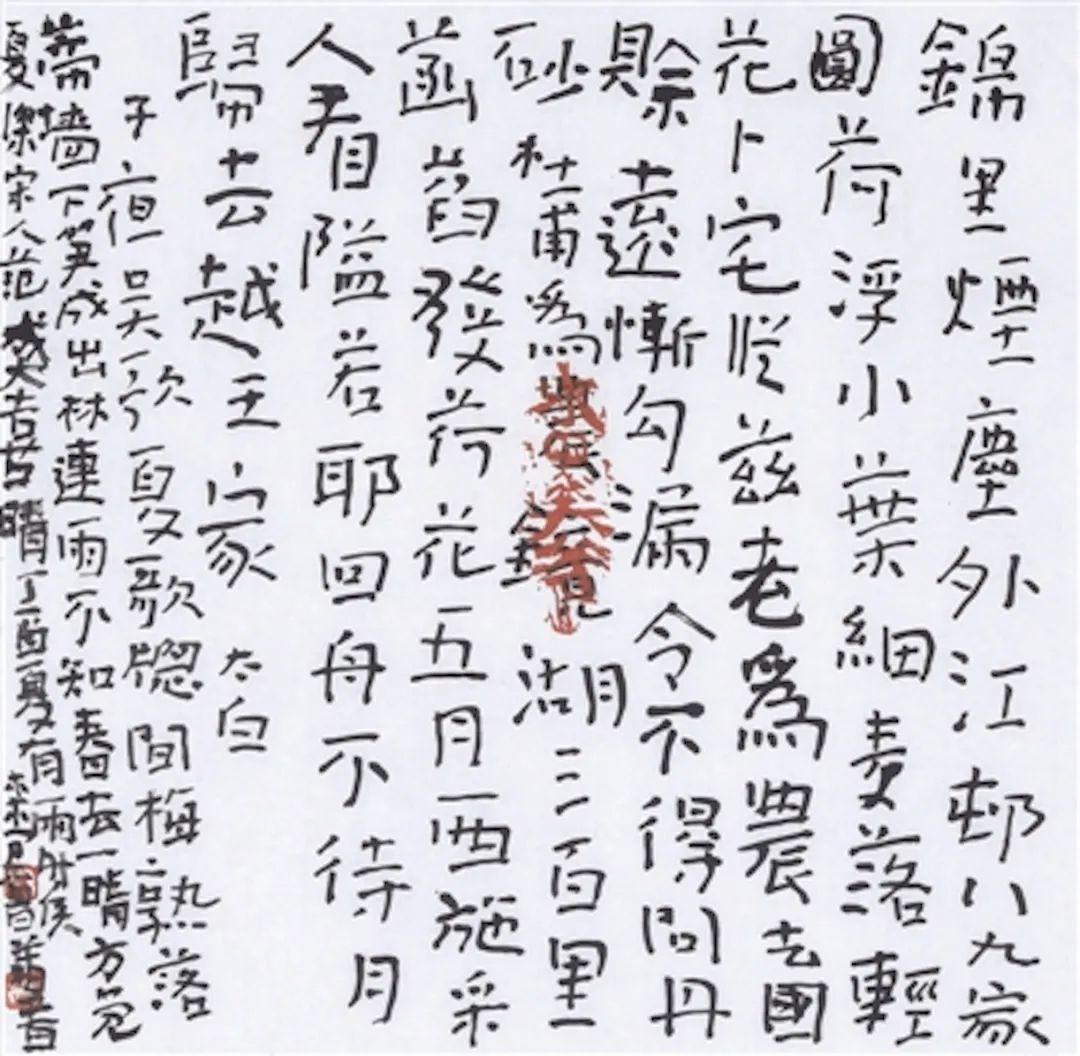 錦里煙塵外江邨八九家
圓荷浮小葉細麦落輕
花卜宅従茲老為農去國
賖遠慚勾漏令不得問丹
砂杜甫為農鏡湖三百里
菡萏發荷花五月西施采
人看隘若耶回舟不待月
歸去越王家太白
子夜吳歌夏歌牕間梅熟落
蒂墻下笋成出林連雨不知春去一晴方覚
夏深宋人范成大晴丁酉夏有雨